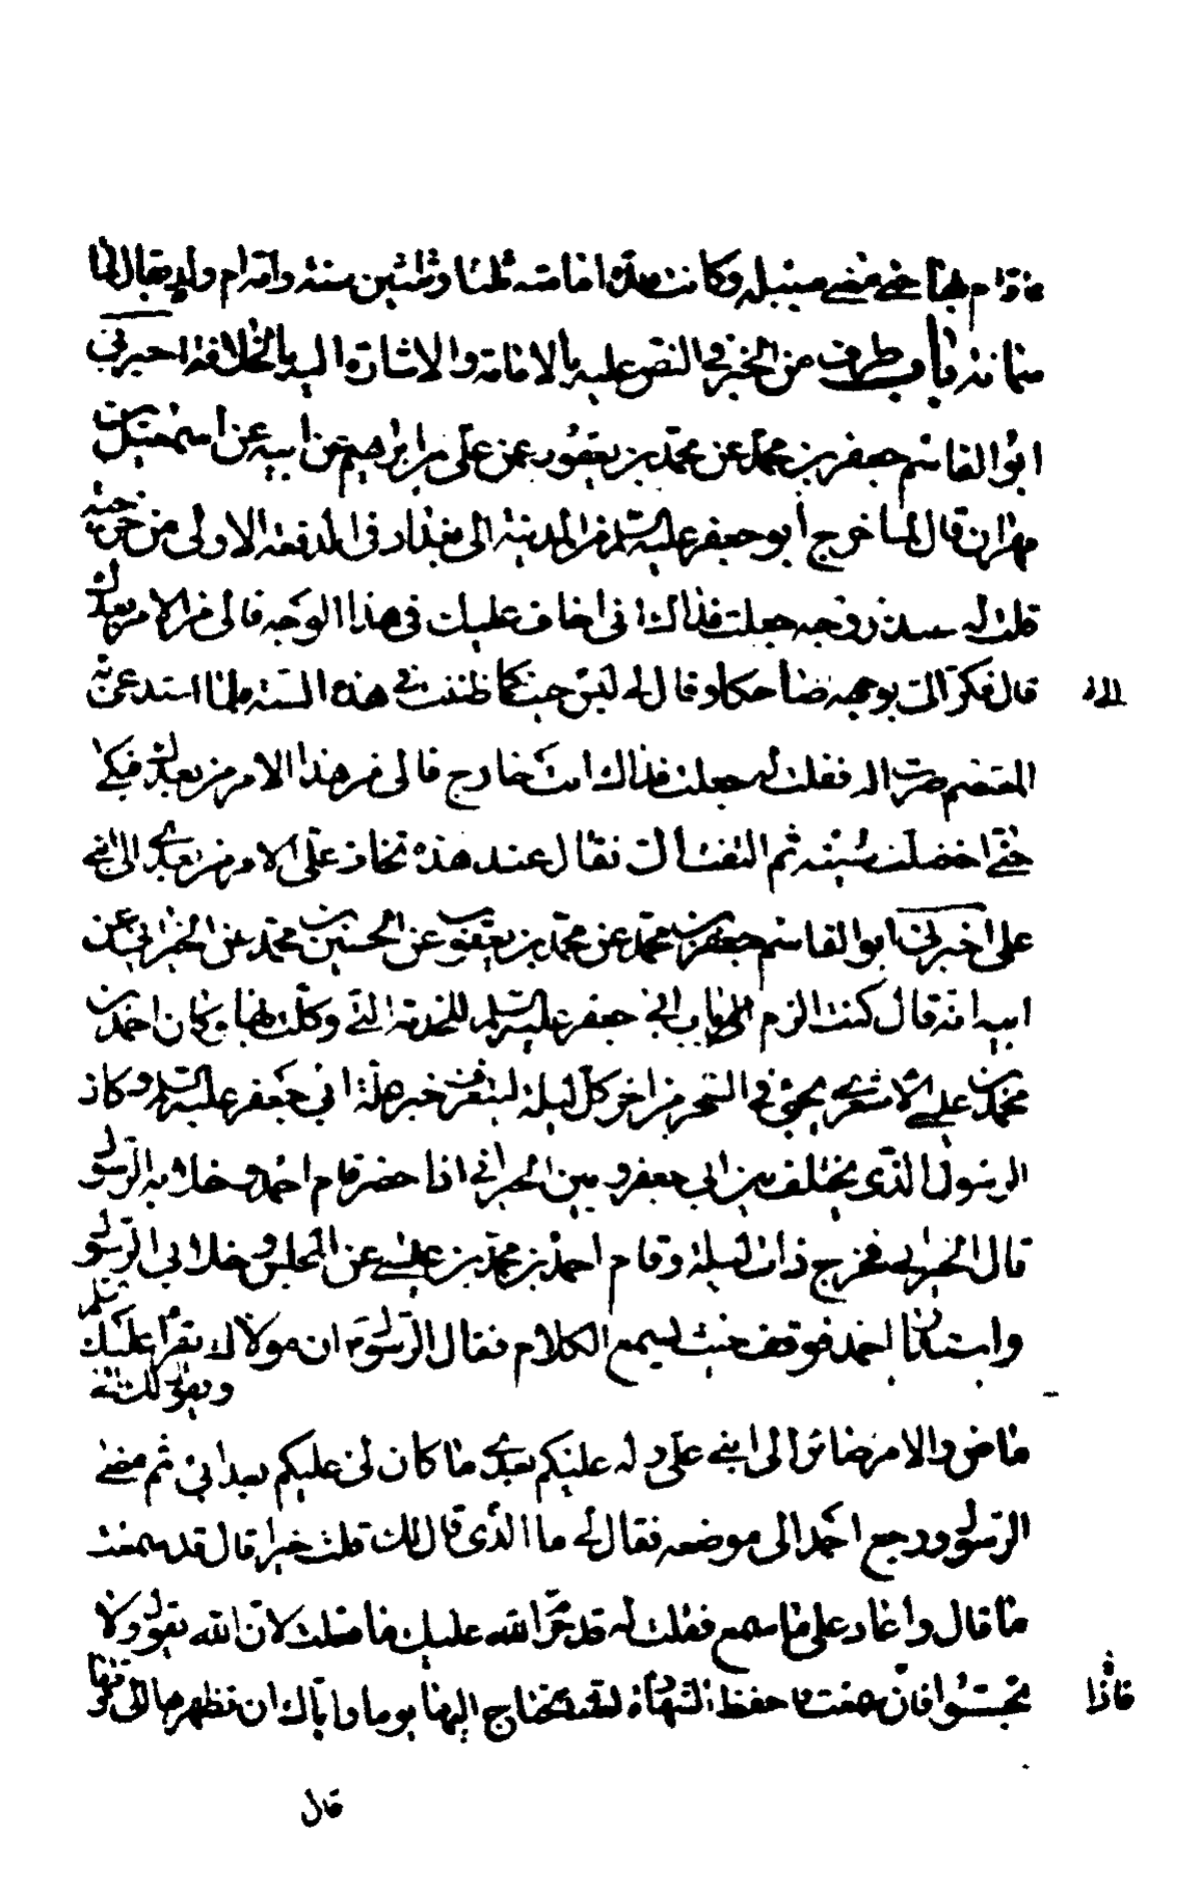 فاقام بها حتى مضى لسبيله وكانت مدة امامته ثلثا وثلثين سنة وامه ام ولد يقال لها
سمانة باب طرف من الخبر في النص عليه بالامامة والاشارة اليه بالخلافة اخبرني
ابو القاسم جعفر بن محمد عن محمد بن يعقوب عن علي بن ابراهيم عن ابيه عن اسمعيل بن
مهران قال لما اخرج أبو جعفر عليه السلم من المدينة الى بغداد في الدفعة الاولى من خرجتيه
قلت له عند خروجه جعلت فداك انى اخاف عليك في هذا الوجه فالى من الامر بعدك
قال فكر الي بوجهه ضاحكا وقال لي ليس حيث كما ظننت في هذه السنة فلما استدعى به
الى
المعتصم صرت اليه فقلت له جعلت فداك انت خارج فالى من هذا الامر من بعدك فبكى
حتى اخضلت لحيته ثم التفت الي فقال عند هذه تخاف علي الامر من بعدي الى ابني
علي اخبرني ابو القاسم جعفر بن محمد عن محمد بن يعقوب عن الحسين بن محمد عن الخيراني عن
ابيه انه قال كنت الزم باب ابي جعفر عليه السلم للخدمة التي وكلت بها وكان احمد بن
محمد بن عيسى الاشعري يجيئ في السحر من اخر كل ليلة ليتعرف خبر علة ابي جعفر عليه السلم وكان
الرسول الذي يختلف بين ابي جعفر وبين الخيراني اذا حضر قام احمد وخلا به الرسول
قال الخيراني فخرج ذات ليلة وقام احمد بن محمد بن عيسى عن المجلس وخلا بي الرسول
واستدار احمد فوقف حيث يسمع الكلام فقال الرسول ان مولاك يقرأ عليك السلم
ويقول لك انى
ماض والامر صائر الى ابني علي وله عليكم بعدي ما كان لي عليكم بعد ابي ثم مضى
الرسول ورجع احمد الى موضعه فقال لي ما الذي قال لك قلت خيرا قال قد سمعت
ما قال واعاد علي ما سمع فقلت له قد حرم الله عليك ما فعلت لان الله يقول ولا
تجسسوا فان سمعت فاحفظ الشهادة لعلنا نحتاج اليها يوما واياك ان تظهرها الى وقتها
فاذا
قال